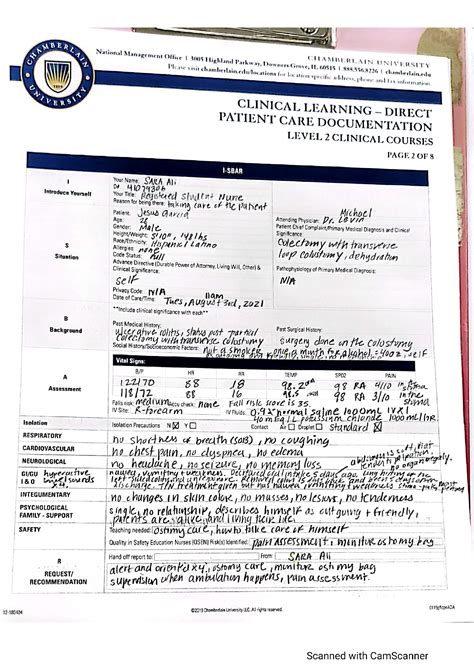 CHAMBERLAIN UNIVERSITY
National Management Office | 3005 Highland Parkway, Downers Grove, IL 60515 | 888.556.8226 | chamberlain.edu
Please visit chamberlain.edu/locations for location specific address, phone and fax information.
CHAMBERLAIN
UNIVERSITY
CLINICAL LEARNING – DIRECT
PATIENT CARE DOCUMENTATION
LEVEL 2 CLINICAL COURSES
PAGE 2 OF 8
I-SBAR
I
Introduce Yourself
Your Name: SARA Ali
D#: 41074306
Your Title: Registered Student Nurse
Reason for being there: taking care of the patient
S
Situation
Patient: Jesus Garcia
Age: 26
Gender: Male
Height/Weight: 5'10", 148 lbs
Race/Ethnicity: Hispanic/Latino
Allergies: none
Code Status: Full
Advance Directive (Durable Power of Attorney, Living Will, Other) &
Clinical Significance:
self
Privacy Code: N/A
Date of Care/Time: Tues, August 3rd, 2021 11am
**Include clinical significance with each**
Attending Physician: Dr. Michael Levin
Patient Chief Complaint/Primary Medical Diagnosis and Clinical
Significance:
Colectomy with transverse
loop colostomy, dehydration
Pathophysiology of Primary Medical Diagnosis:
N/A
B
Background
Past Medical History:
ulcerative colitis, status post partial
colectomy with transverse colostomy
Past Surgical History:
surgery done on the colostomy
Social History/Socioeconomic Factors:
A
Assessment
Vital Signs:
B/P HR RR TEMP SPO2 PAIN
122/70 88 18 98.2 98 RA 4/10
118/72 88 16 98.5 98 RA 3/10
Fall risk: medium Accu check: none Fall risk score is 35
IV Site: R-forearm IV Fluids: 0.9% normal saline 1000ml IV x1
Isolation
Isolation Precautions N Y Contact Air Droplet Standard
RESPIRATORY
no shortness of breath (SOB), no coughing
CARDIOVASCULAR
no chest pain, no dyspnea, no edema
NEUROLOGICAL
no headache, no seizure, no memory loss
GI/GU
I & O
hyperactive
bowel sounds
INTEGUMENTARY
no changes in skin color, no masses, no lesions, no tenderness
PSYCHOLOGICAL
FAMILY - SUPPORT
single, no relationship, describes himself as outgoing + friendly,
parents are alive and living
SAFETY
Teaching needed: ostomy care, how to take care of himself
Quality in Safety Education Nurses (QSEN) Risk(s) Identified: pain assessment, monitor ostomy bag
Hand off report to: From SARA Ali
R
REQUEST/
RECOMMENDATION
alert and oriented x4, ostomy care, monitor ostomy bag
supervision when ambulation happens, pain assessment.
12-180404
©2019 Chamberlain University LLC. All rights reserved.
Scanned with CamScanner